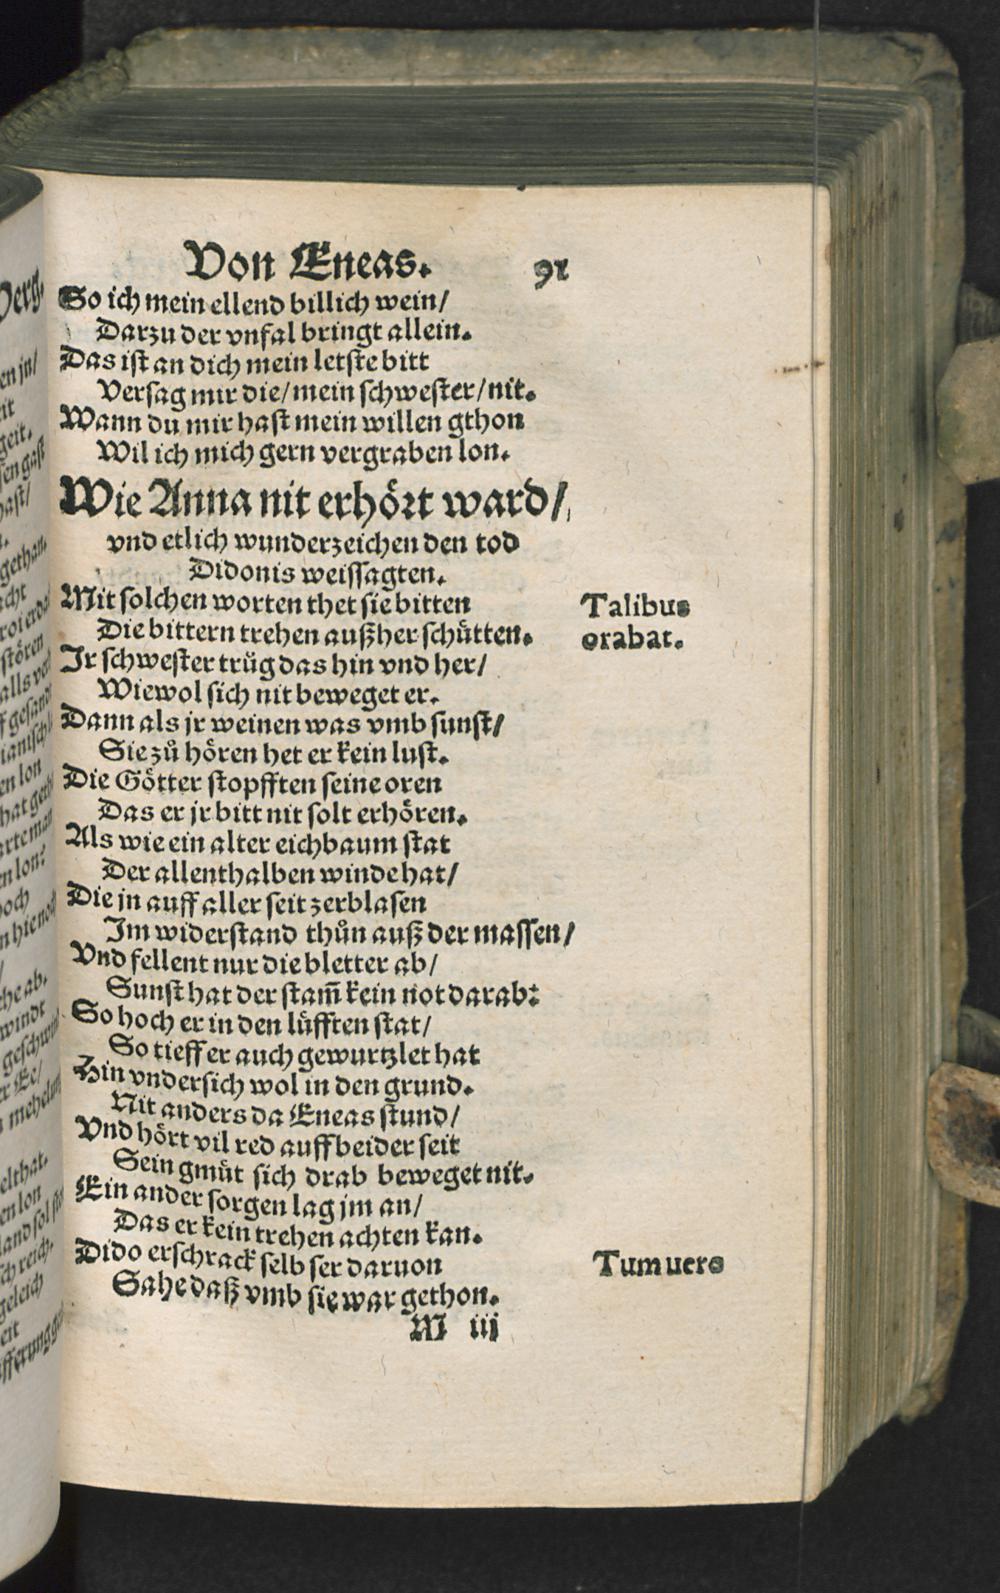 Von Eneas. 91
So ich mein ellend billich wein/
Darzu der vnfal bringt allein.
Das ist an dich mein letste bitt
Versag mir die/ mein schwester/ nit.
Wann du mir hast mein willen gthon
Wil ich mich gern vergraben lon.
Wie Anna nit erhört ward/
vnd etlich wunderzeichen den tod
Didonis weissagten.
Mit solchen worten thet sie bitten
Talibus
Die bittern trehen außher schütten.
orabat.
Ir schwester trůg das hin vnd her/
Wiewol sich nit beweget er.
Dann als jr weinen was vmb sunst/
Sie zů hören het er kein lust.
Die Götter stopfften seine oren
Das er jr bitt nit solt erhören.
Als wie ein alter eichbaum stat
Der allenthalben winde hat/
Die jn auff aller seit zerblasen
Im widerstand thůn auß der massen/
Vnd fellent nur die bletter ab/
Sunst hat der stam̄ kein not darab:
So hoch er in den lüfften stat/
So tieff er auch gewurtzlet hat
Hin vndersich wol in den grund.
Nit anders da Eneas stund/
Vnd hört vil red auff beider seit
Sein gmüt sich drab beweget nit.
Ein ander sorgen lag jm an/
Das er kein trehen achten kan.
Dido erschrack selb ser daruon
Tum uero
Sahe daß vmb sie war gethon.
M iij